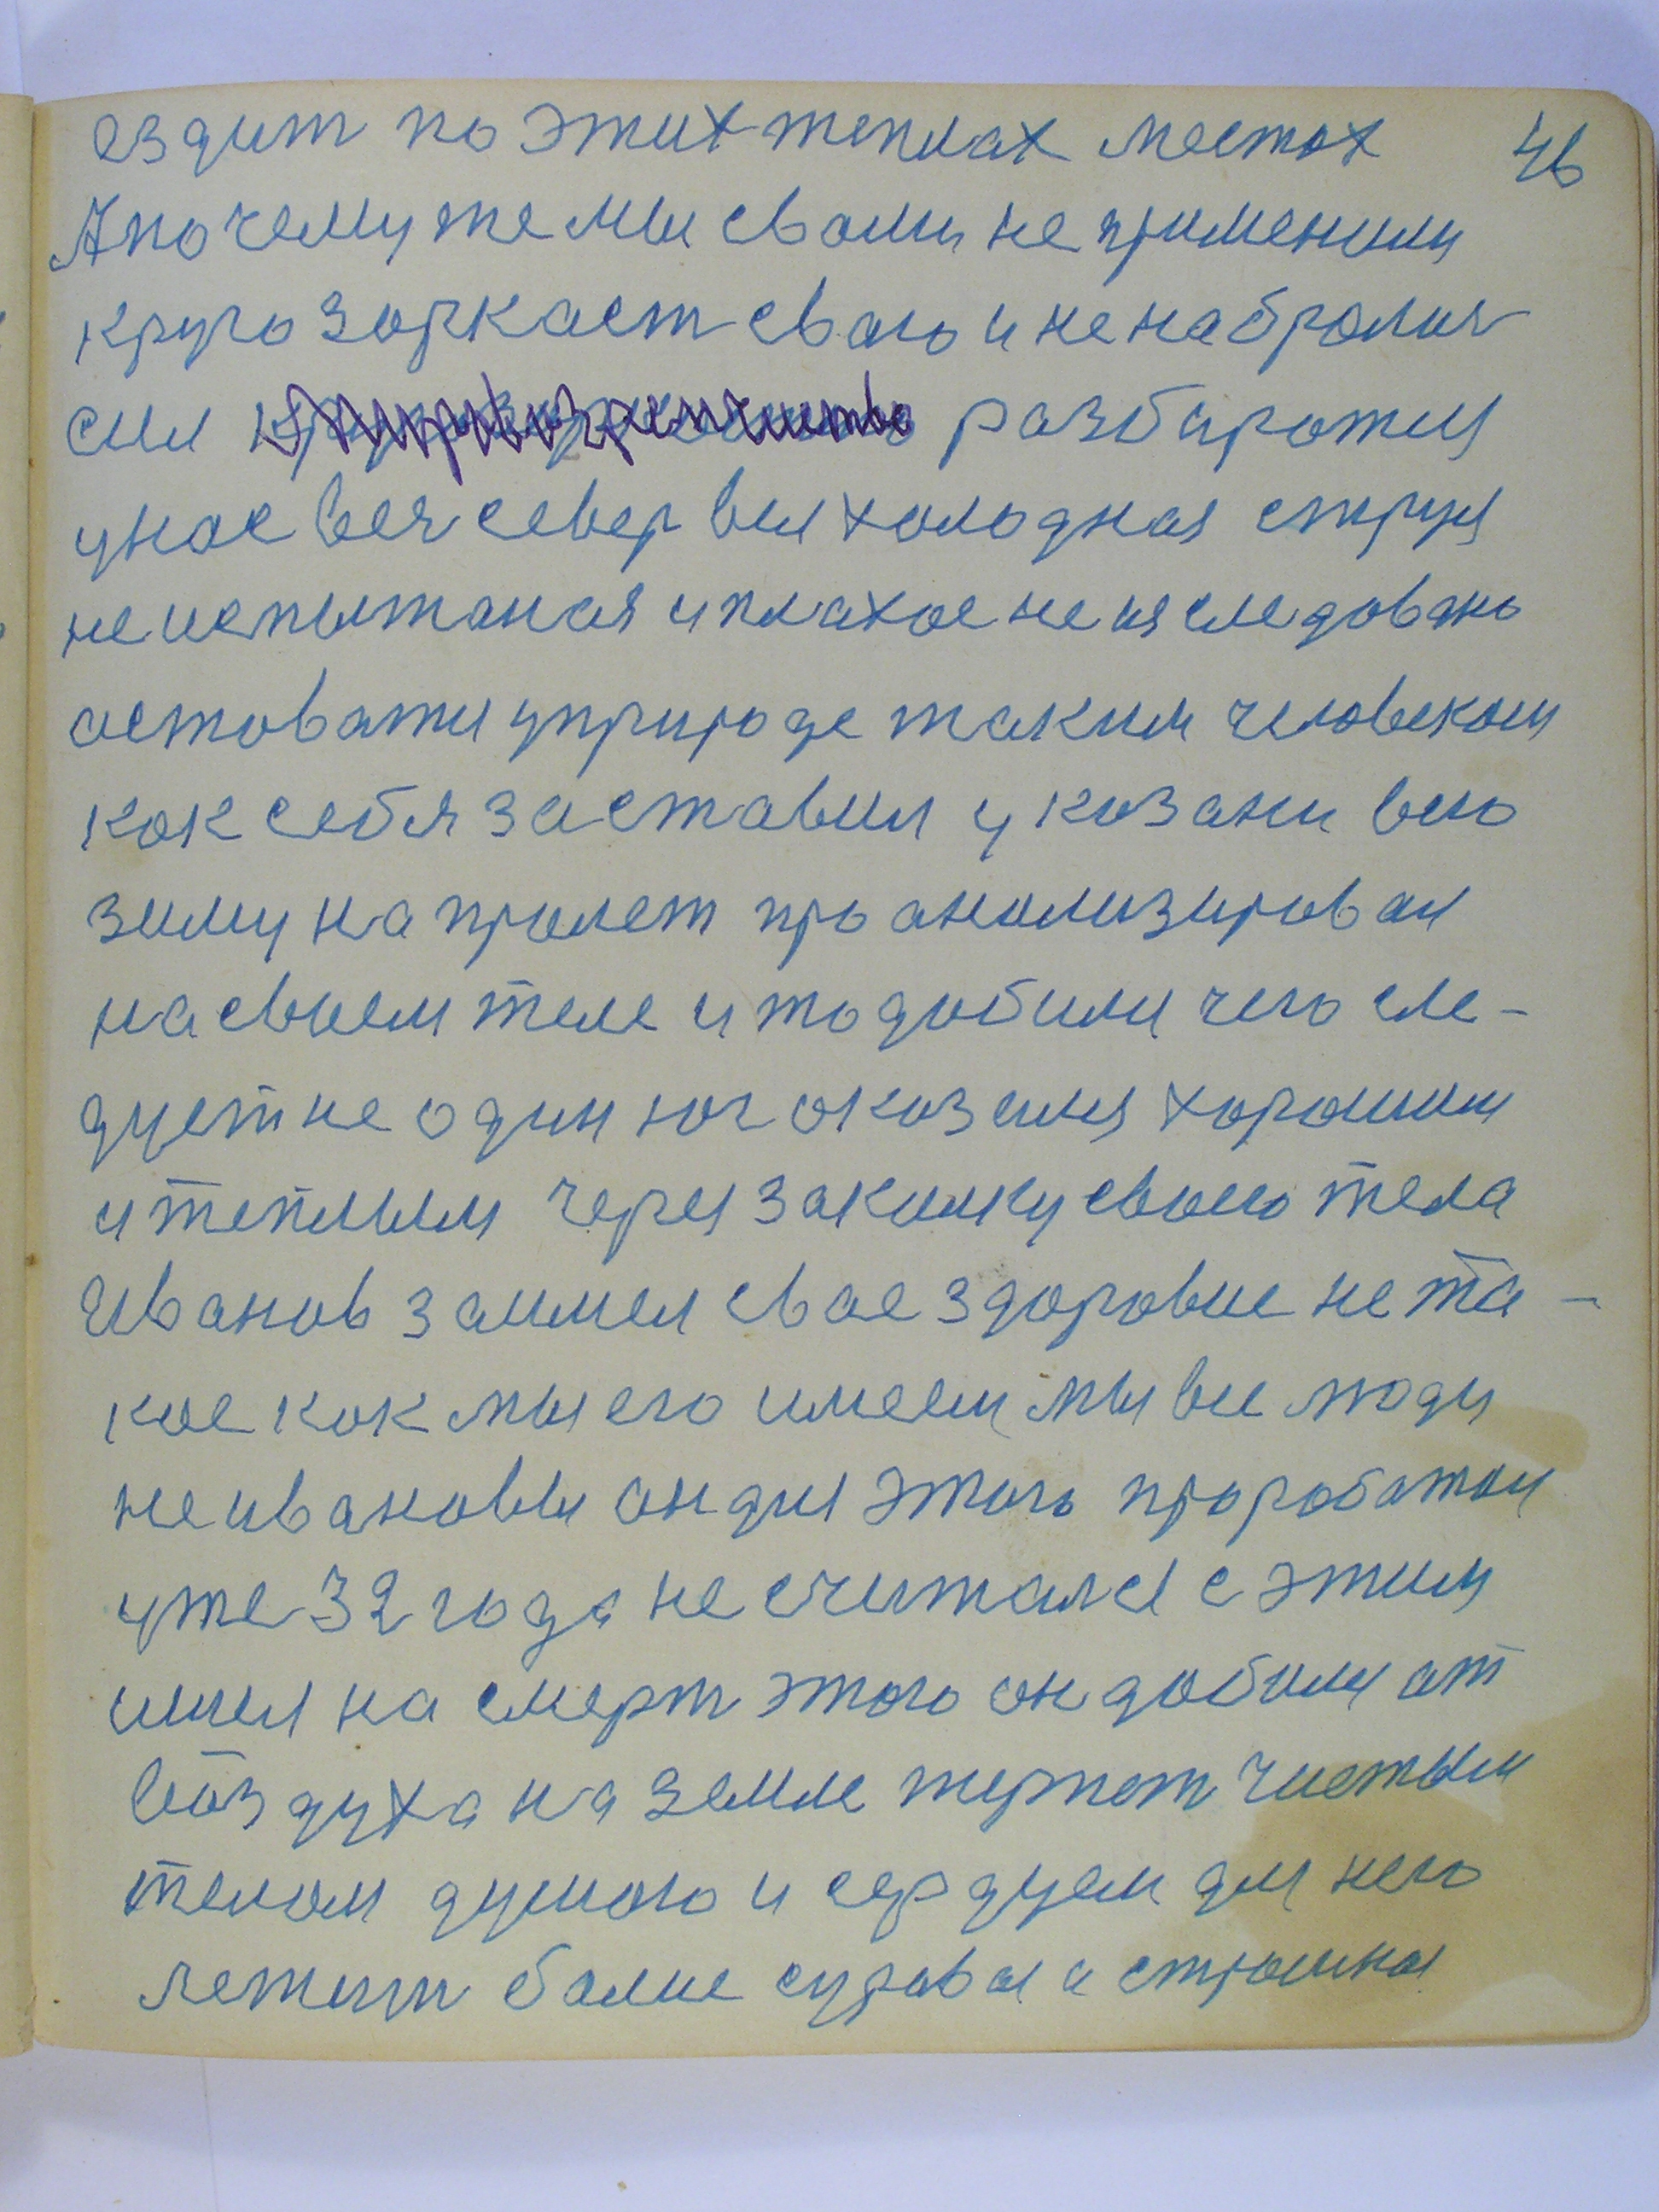 ездит по этих теплах местах 46
А почемуже мы свами не применили
кругозоркаст сваго и не набралис
сил разбиратця
унас вся север вся холодная струя
не испытаная и плахое не иследовано
астоватця уприроде таким человеком
как себя заставил у казани всю
зиму на пролет про анализировал
на своем теле и то добился чего сле-
дует не один юг оказался хорошим
и теплым через закалку своего тела
Иванов заимел свое здоровие не та-
кое как мы его имеем мы все люди
не ивановы он для этого проработал
уже 32 года не считался с этим
ишел на смерт этого он добился от
воздуха на земле терпет чистым
телом душою и сердцем для него
лежит более суровая и страшная